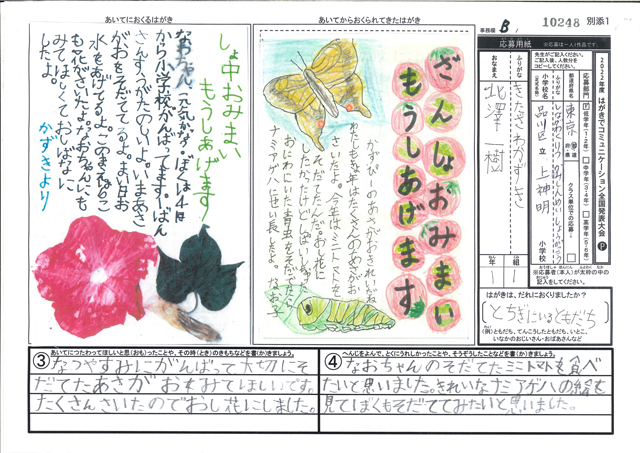 あいてにおくるはがき
あいてからおくられてきたはがき
事務欄 B
10248 別添1
しょ中おみまい
もうしあげます
なおちゃん、元気かな。ぼくは4月
から小学校がんばってます。けん
さんすうがたのしいよ。いまあさ
がおをそだててるよ。まい日お
水をあげてるよ。このまえむらさき
も花がさいたよ。なおちゃんにも
みてほしくておしばなに
したよ。
かずきより
ざんしょおみまい
もうしあげます
かずぴーのあさがおきれいね。
わたしも去年はたくさんのあさがお
さいたよ。今年はミニトマトを
そだてたんだ。お花に
したかったけどしっぱい。
おにわにいた青虫をそだてたら
ナミアゲハにせい長したよ。なお子
応募用紙
※応募は一人1作品です。
先生がご記入ください。
ご記入後、人数分を
コピーしてください。
2022年度 はがきでコミュニケーション全国発表大会 P
応募部門
低学年(1・2年)
中学年(3・4年)
高学年(5・6年)
都道府県名
東京 都 道 府 県
クラス単位での応募
ふりがな
小学校名
(正式名称)
品川区立 上神明 小学校
ふりがな
おなまえ
きたざわ かずき
北澤 一樹
1年 1組
※応募者(本人)が太枠の中の
記入をしてください。
はがきは、だれにおくりましたか?
(とちぎにいるともだち)
(例)ともだち、てんこうしたともだち、いとこ、
いなかのおじいさん・おばあさんなど
③ あいてにつたわってほしいと思(おも)ったことや、その時(とき)のきもちなどを書(か)きましょう。
なつやすみにがんばって大切にそ
だてたあさがおをみてほしいです。
たくさんさいたのでおし花にしました。
④ へんじをよんで、とくにうれしかったことや、そうぞうしたことなどを書(か)きましょう。
なおちゃんのそだてたミニトマトも食べ
たいと思いました。きれいなナミアゲハの絵を
見てぼくもそだててみたいと思いました。